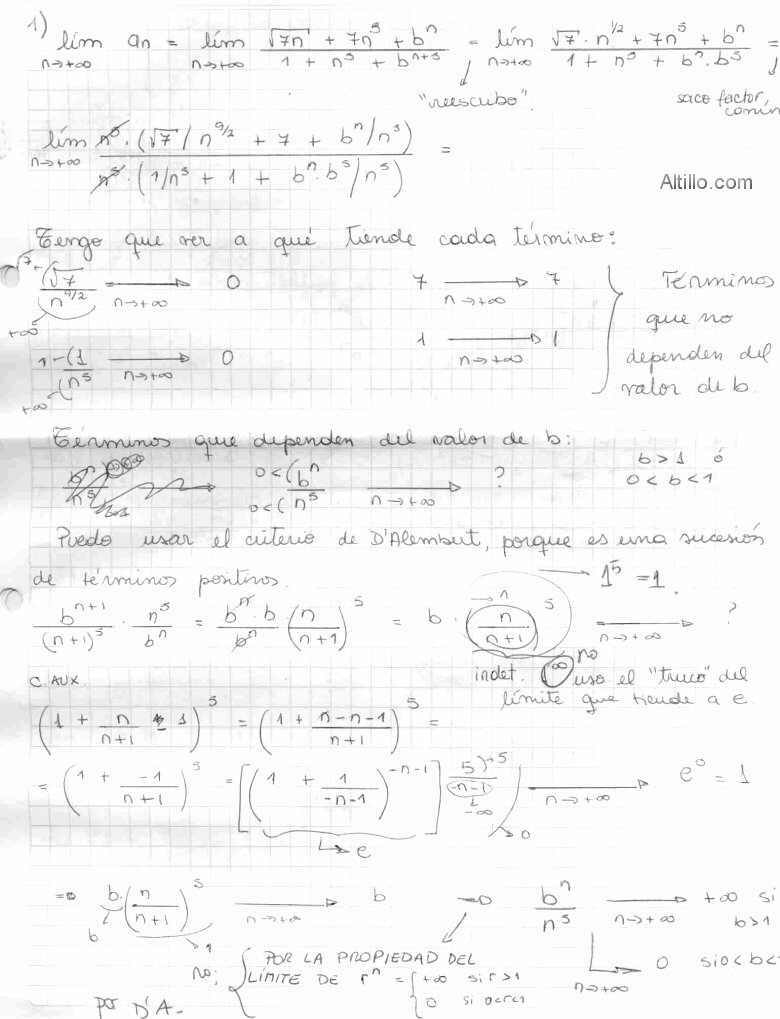 1) lím an = lím (√7n + 7n⁵ + bⁿ)/(1 + n⁵ + bⁿ⁺⁵) = lím (√7 · n^1/2 + 7n⁵ + bⁿ)/(1 + n⁵ + bⁿ · b⁵) =
n→+∞ n→+∞ n→+∞
"reescribo". saco factor común
lím n⁵ · (√7 / n^9/2 + 7 + bⁿ/n⁵) / n⁵ · (1/n⁵ + 1 + bⁿ · b⁵/n⁵) =
n→+∞
Altillo.com
Tengo que ver a qué tiende cada término:
√7 ← (√7 / n^9/2 → 0 7 → 7 } Términos
+∞ n→+∞ n→+∞ que no
1 ← (1 / (n⁵ → 0 1 → 1 dependen del
+∞ n→+∞ n→+∞ valor de b.
Términos que dependen del valor de b:
bⁿ/n⁵ 0<(bⁿ / 0<(n⁵ → ? b > 1 ó
n→+∞ 0 < b < 1
Puedo usar el criterio de D'Alembert, porque es una sucesión
de términos positivos. → 1⁵ = 1.
bⁿ⁺¹/(n+1)⁵ · n⁵/bⁿ = bⁿ · b/bⁿ (n/(n+1))⁵ = b · (n/(n+1))⁵ → ?
→ 1 n→+∞
indet. 1^∞ no
uso el "truco" del
límite que tiende a e
C. AUX.
(1 + n/(n+1) - 1)⁵ = (1 + (n-n-1)/(n+1))⁵ =
= (1 + -1/(n+1))⁵ = [(1 + 1/(-n-1))^(-n-1)]^(5/(-n-1)) → e⁰ = 1
→ e -∞ → 0 n→+∞
⇒ b · (n/(n+1))⁵ → b → bⁿ/n⁵ → +∞ si
b → 1 n→+∞ n→+∞ b>1
→ 0 si 0<b<
n→+∞
POR LA PROPIEDAD DEL
LÍMITE DE rⁿ = { +∞ si r>1
0 si 0<r<1
por D'A.